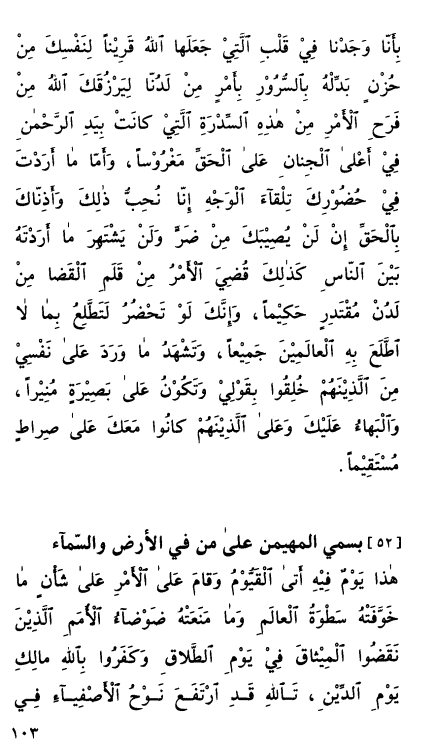 بِأَنّا وَجَدْنا فِيْ قَلْبِ ٱلَّتِيْ جَعَلَها ٱللهُ قَرِيْناً لِنَفْسِكَ مِنْ
حُزْنٍ بَدِّلْهُ بِٱلسُّرُوْرِ بِأَمْرٍ مِنْ لَدُنّا لِيَرْزُقَكَ ٱللهُ مِنْ
فَرَحِ ٱلْأَمْرِ مِنْ هٰذِهِ ٱلسِّدْرَةِ ٱلَّتِيْ كانَتْ بِيَدِ ٱلرَّحْمٰنِ
فِيْ أَعْلىٰ ٱلْجِنانِ عَلىٰ ٱلْحَقِّ مَغْرُوْساً، وَأَمّا ما أَرَدْتَ
فِيْ حُضُوْرِكَ تِلْقآءَ ٱلْوَجْهِ إِنّا نُحِبُّ ذٰلِكَ وَأَذِنّاكَ
بِٱلْحَقِّ إِنْ لَنْ يُصِيْبَكَ مِنْ ضَرٍّ وَلَنْ يَشْتَهِرَ ما أَرَدْتَهُ
بَيْنَ ٱلنّاسِ كَذٰلِكَ قُضِيَ ٱلْأَمْرُ مِنْ قَلَمِ ٱلْقَضا مِنْ
لَدُنْ مُقْتَدِرٍ حَكِيْماً، وَإِنَّكَ لَوْ تَحْضُرُ لَتَطَّلِعُ بِما لا
ٱطَّلَعَ بِهِ ٱلْعالَمِيْنَ جَمِيْعاً، وَتَشْهَدُ ما وَرَدَ عَلىٰ نَفْسِيْ
مِنَ ٱلَّذِيْنَهُمْ خُلِقُوا بِقَوْلِيْ وَتَكُوْنُ عَلىٰ بَصِيْرَةٍ مُنِيْراً،
وَٱلْبَهاءُ عَلَيْكَ وَعَلىٰ ٱلَّذِيْنَهُمْ كانُوا مَعَكَ عَلىٰ صِراطٍ
مُسْتَقِيْماً.
[٥٢] بسمي المهيمن علىٰ من في الأرض والسّمآء
هٰذا يَوْمٌ فِيْهِ أَتىٰ ٱلْقَيُّوْمُ وَقامَ عَلىٰ ٱلْأَمْرِ عَلىٰ شَأْنٍ ما
خَوَّفَتْهُ سَطْوَةُ ٱلْعالَمِ وَما مَنَعَتْهُ ضَوْضآءُ ٱلْأُمَمِ ٱلَّذِيْنَ
نَقَضُوا ٱلْمِيْثاقَ فِيْ يَوْمِ ٱلطَّلاقِ وَكَفَرُوا بِٱللهِ مالِكِ
يَوْمِ ٱلدِّيْنِ، تَٱللهِ قَدِ ٱرْتَفَعَ نَوْحُ ٱلْأَصْفِيآءِ فِيْ
١٠٣